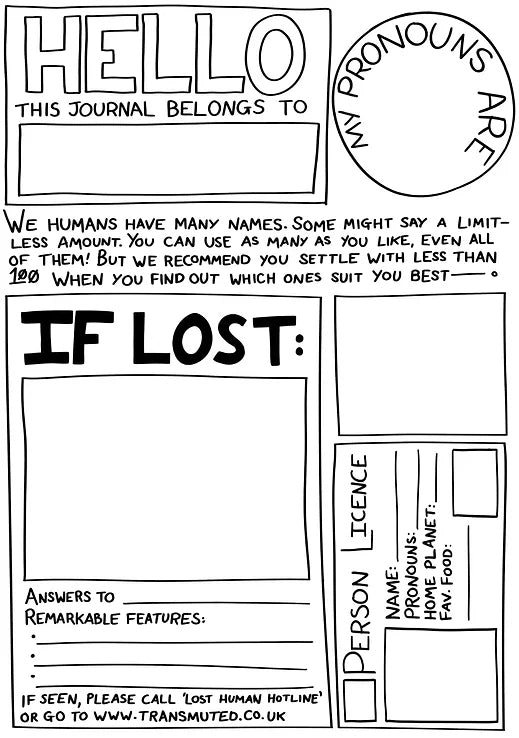 HELLO
THIS JOURNAL BELONGS TO
MY PRONOUNS ARE
WE HUMANS HAVE MANY NAMES. SOME MIGHT SAY A LIMIT-
LESS AMOUNT. YOU CAN USE AS MANY AS YOU LIKE, EVEN ALL
OF THEM! BUT WE RECOMMEND YOU SETTLE WITH LESS THAN
100 WHEN YOU FIND OUT WHICH ONES SUIT YOU BEST
IF LOST:
ANSWERS TO
REMARKABLE FEATURES:
IF SEEN, PLEASE CALL 'LOST HUMAN HOTLINE'
OR GO TO WWW.TRANSMUTED.CO.UK
PERSON LICENCE
NAME:
PRONOUNS:
HOME PLANET:
FAV. FOOD: